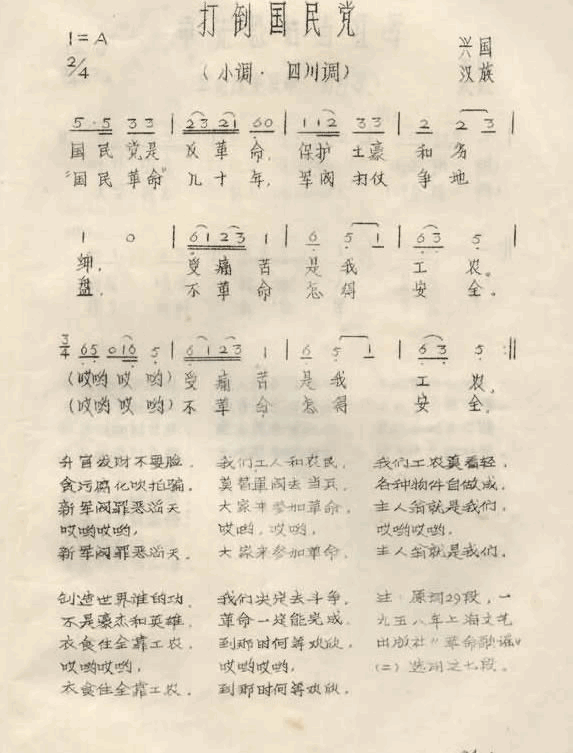 打倒国民党
1=A
2/4
（小调·四川调）
兴国
汉族
5·5 33 | 23 21 60 | 112 33 | 2 2 3 |
国民党是 反革命， 保护土豪 和劣
“国民革命”几十年， 军阀打仗 争地
1 0 | 6123 1 | 6 5 1 | 63 5 |
绅， 受痛苦 是我 工农。
盘， 不革命 怎得 安全。
3/4 65 016 5 | 6123 1 | 6 5 1 | 63 5 :||
（哎哟哎哟）受痛苦 是我 工农，
（哎哟哎哟）不革命 怎得 安全。
升官发财不要脸，
贪污腐化吹拍骗，
新军阀罪恶滔天
哎哟哎哟，
新军阀罪恶滔天。
我们工人和农民，
莫替军阀去当兵，
大家来参加革命，
哎哟，哎哟，
大家来参加革命，
我们工农莫看轻，
各种物件自做成，
主人翁就是我们，
哎哟哎哟，
主人翁就是我们。
创造世界谁的功，
不是豪杰和英雄，
衣食住全靠工农，
哎哟哎哟，
衣食住全靠工农。
我们决定去斗争，
革命一定能完成，
到那时何等欢欣，
哎哟哎哟，
到那时何等欢欣，
注：原词29段，一
九五八年上海文艺
出版社“革命歌谣”
（二）选用之七段。